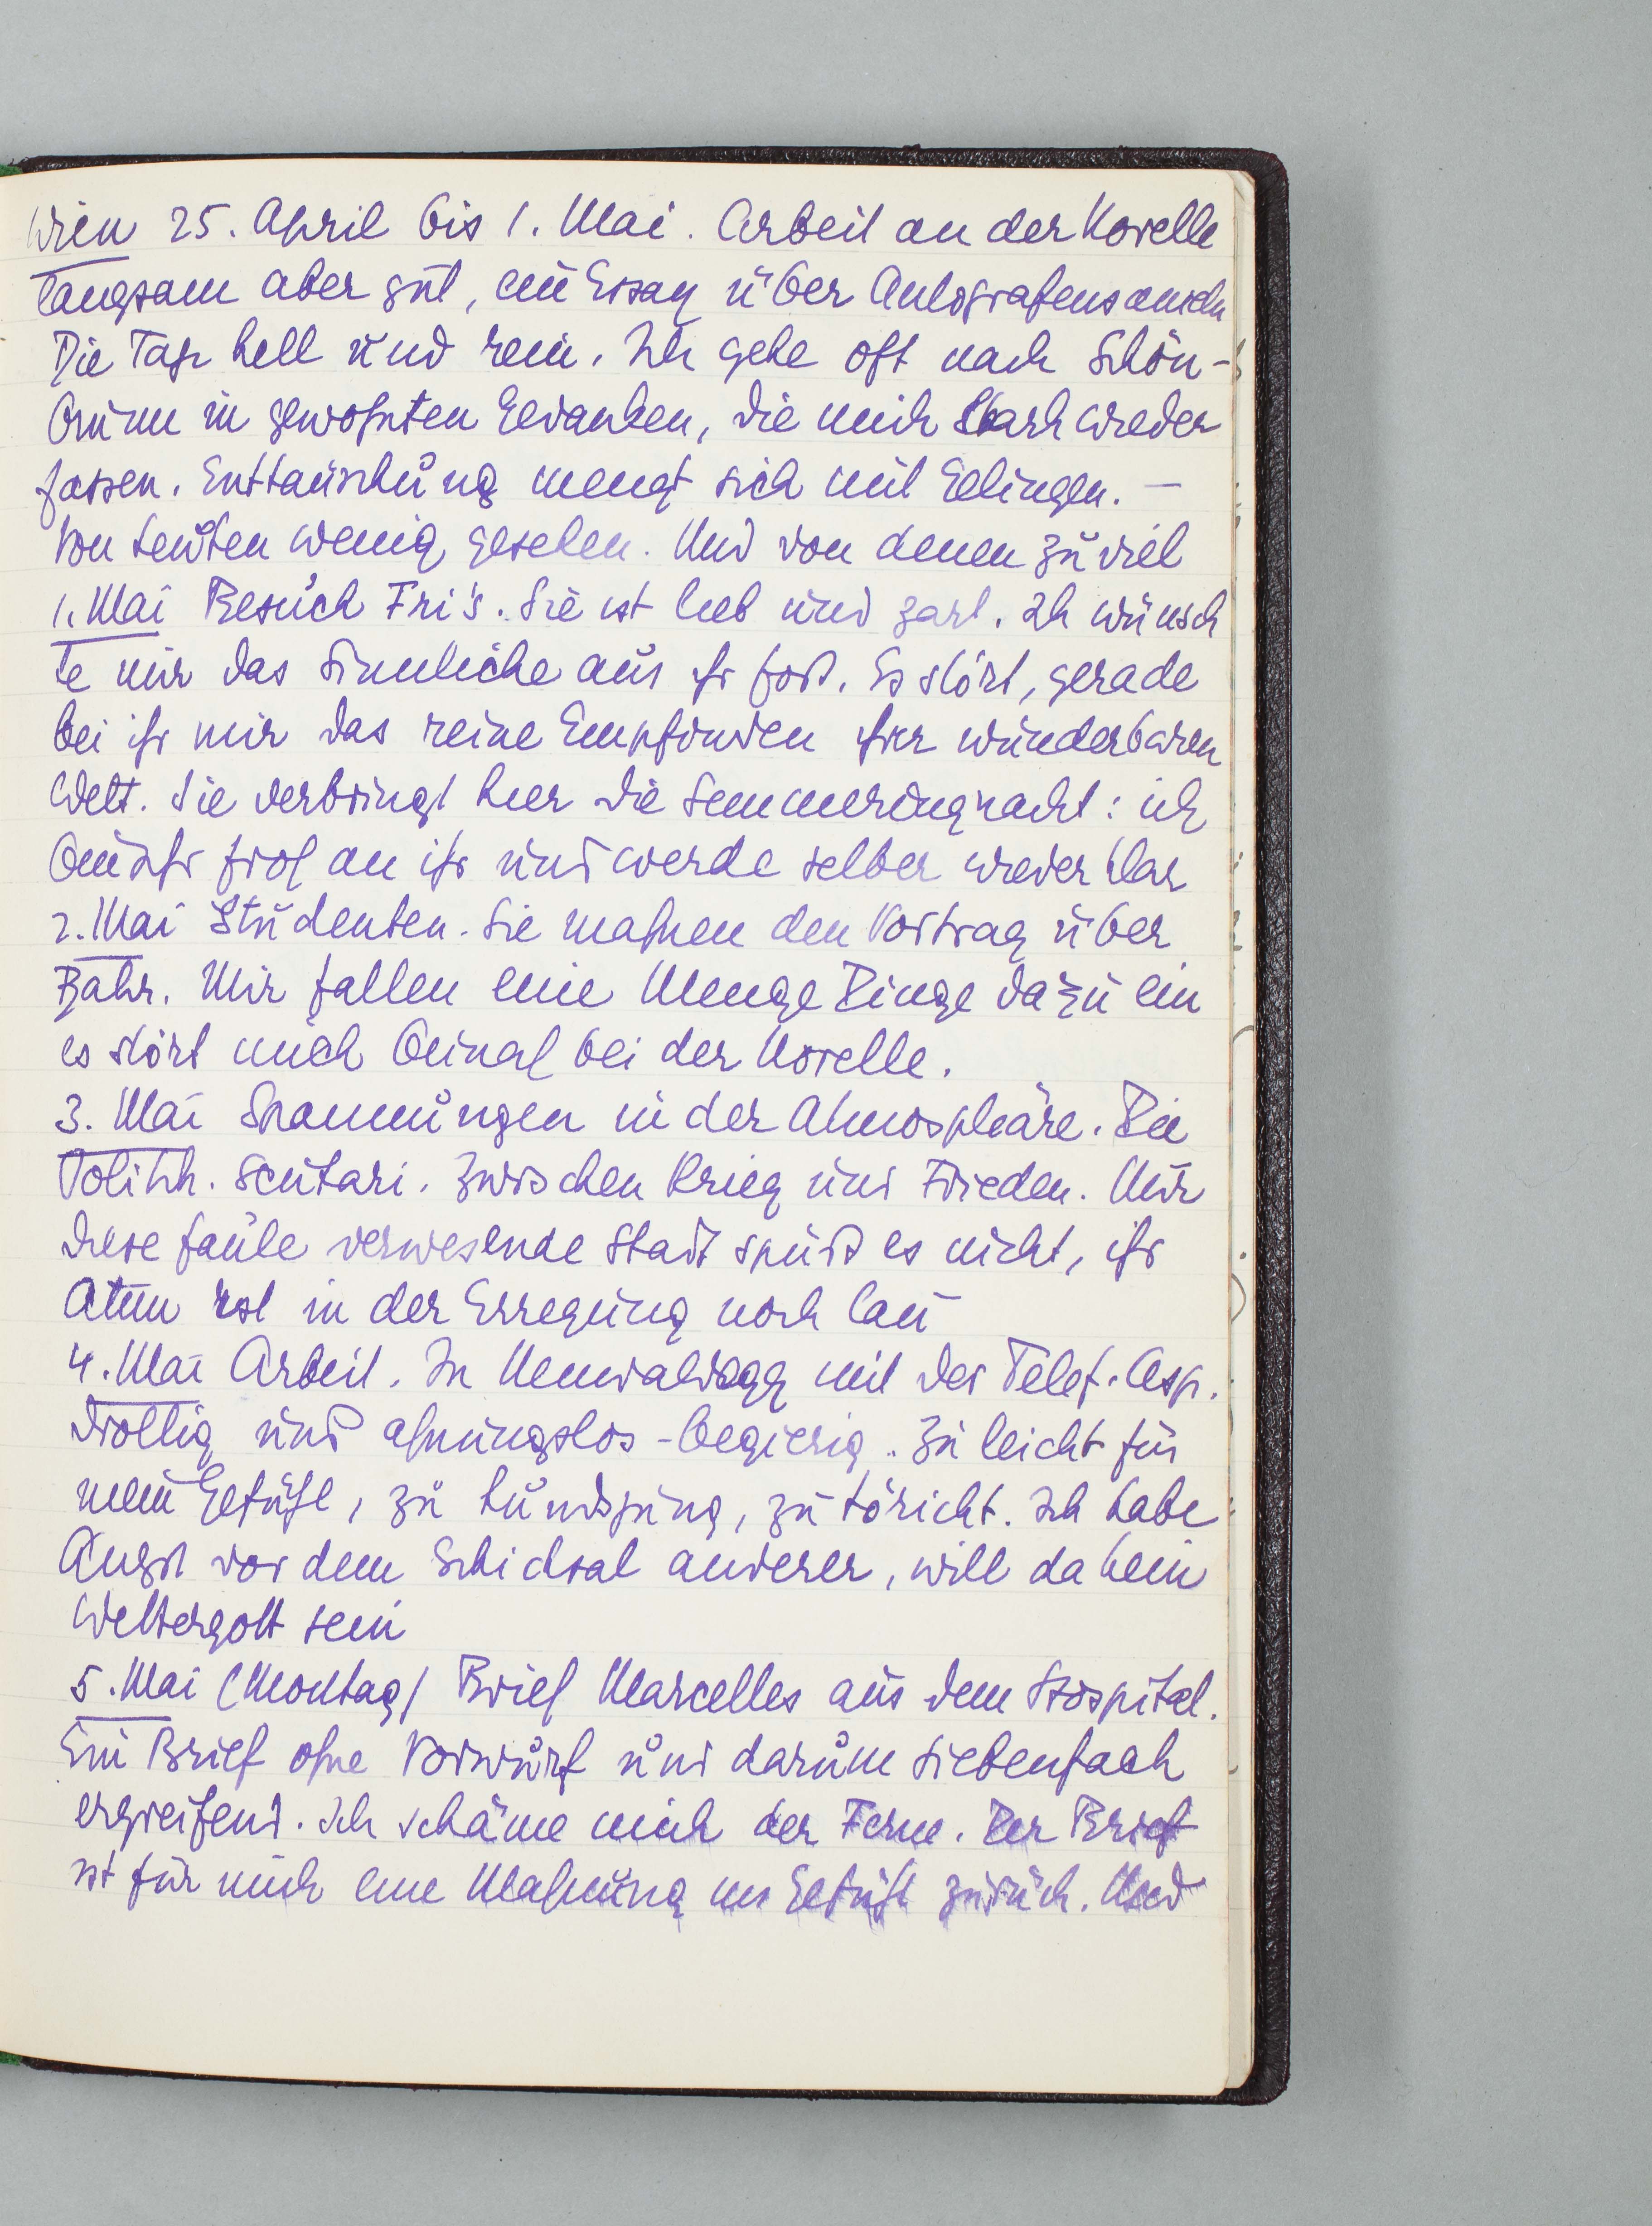 Wien 25. April bis 1. Mai. Arbeit an der Novelle
langsam aber gut, ein Essay über Autografensammeln
Die Tage hell und rein. Ich gehe oft nach Schön-
brunn in gewohnten Gedanken, die mich stark wieder
fassen. Enttäuschung mengt sich mit Gelingen. –
Von Leuten wenig gesehen. Und von denen zu viel
1. Mai Besuch Fri's. Sie ist lieb und zart. Ich wünsch
te mir das Sinnliche aus ihr fort. Es stört, gerade
bei ihr mir das reine Empfinden ihrer wunderbaren
Welt. Sie verbringt hier die Semmeringnacht: ich
bin sehr froh an ihr und werde selber wieder klar
2. Mai Studenten. Sie mahnen den Vortrag über
Bahr. Mir fallen eine Menge Dinge dazu ein
es stört mich beinah bei der Novelle.
3. Mai Spannungen in der Atmosphäre. Die
Politik. Scutari. Zwischen Krieg und Frieden. Nur
diese faule verwesende Stadt spürt es nicht, ihr
Atem ist in der Erregung noch lau
4. Mai Arbeit. In Neuwaldegg mit der Telef. Asp.
drollig und ahnungslos-begierig. Zu leicht für
mein Gefühl, zu blutjung, zu töricht. Ich habe
Angst vor dem Schicksal anderer, will da kein
Wettergott sein
5. Mai (Montag) Brief Marcelles aus dem Hospital.
Ein Brief ohne Vorwurf und darum siebenfach
ergreifend. Ich schäme mich der Ferne. Der Brief
ist für mich eine Mahnung ins Gefühl zurück. Und